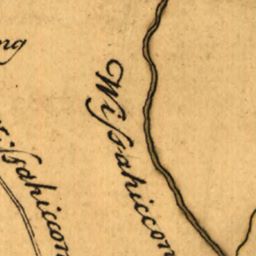 ng
Wiſsahiccon
iſsahiccon